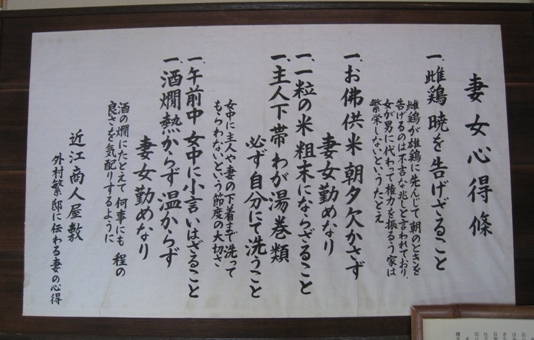 妻女心得條
一、雌鶏 暁を告げざること
雌鶏が雄鶏に先んじて朝のときを
告げるのは不吉な兆しと言われており、
女が男に代わって権力を振るう家は
繁栄しないというたとえ
一、お佛供米 朝夕欠かさず
妻女勤めなり
一、一粒の米 粗末にならざること
一、主人下帯 わが湯巻類
必ず自分にて洗うこと
女中に主人や妻の下着まで洗って
もらわないという節度の大切さ
一、午前中 女中に小言いはざること
一、酒燗 熱からず 温からず
妻女勤めなり
酒の燗にたとえて何事にも程の
良さを気配りするように
近江商人屋敷
外村繁邸に伝わる妻の心得